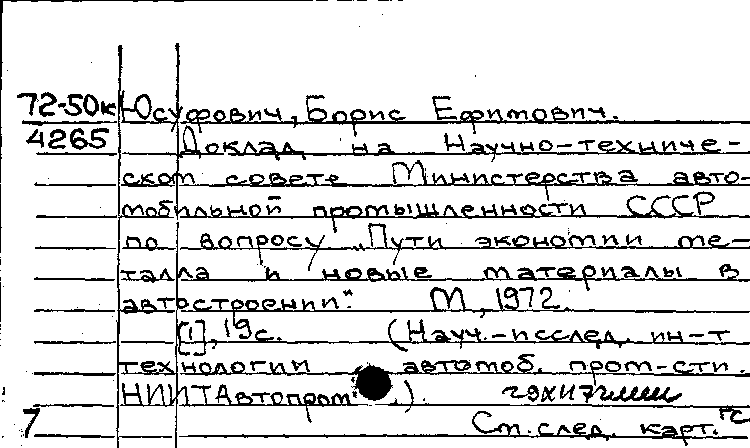 72-50к Юсуфович, Борис Ефимович.
4265 Доклад на Научно-техниче-
ском совете Министерства авто-
мобильной промышленности СССР
по вопросу „Пути экономии ме-
талла и новые материалы в
автостроении". М., 1972.
[1], 19с. (Науч.-исслед. ин-т
технологии автомоб. пром-сти.
НИИТАвтопром .).
7 См. след. карт.